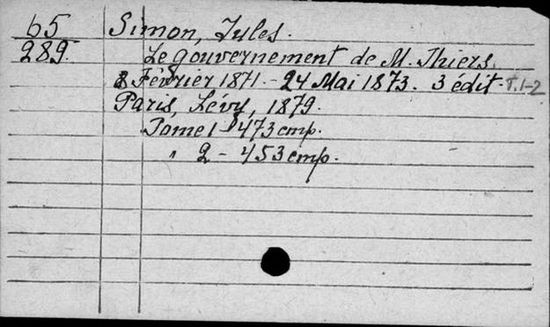 65 Simon, Jules.
289. Le gouvernement de M. Thiers.
8 Février 1871. - 24 Mai 1873. 3 édit. T.1-2
Paris, Lévy, 1879.
Tome 1 - 473 стр.
" 2 - 453 стр.